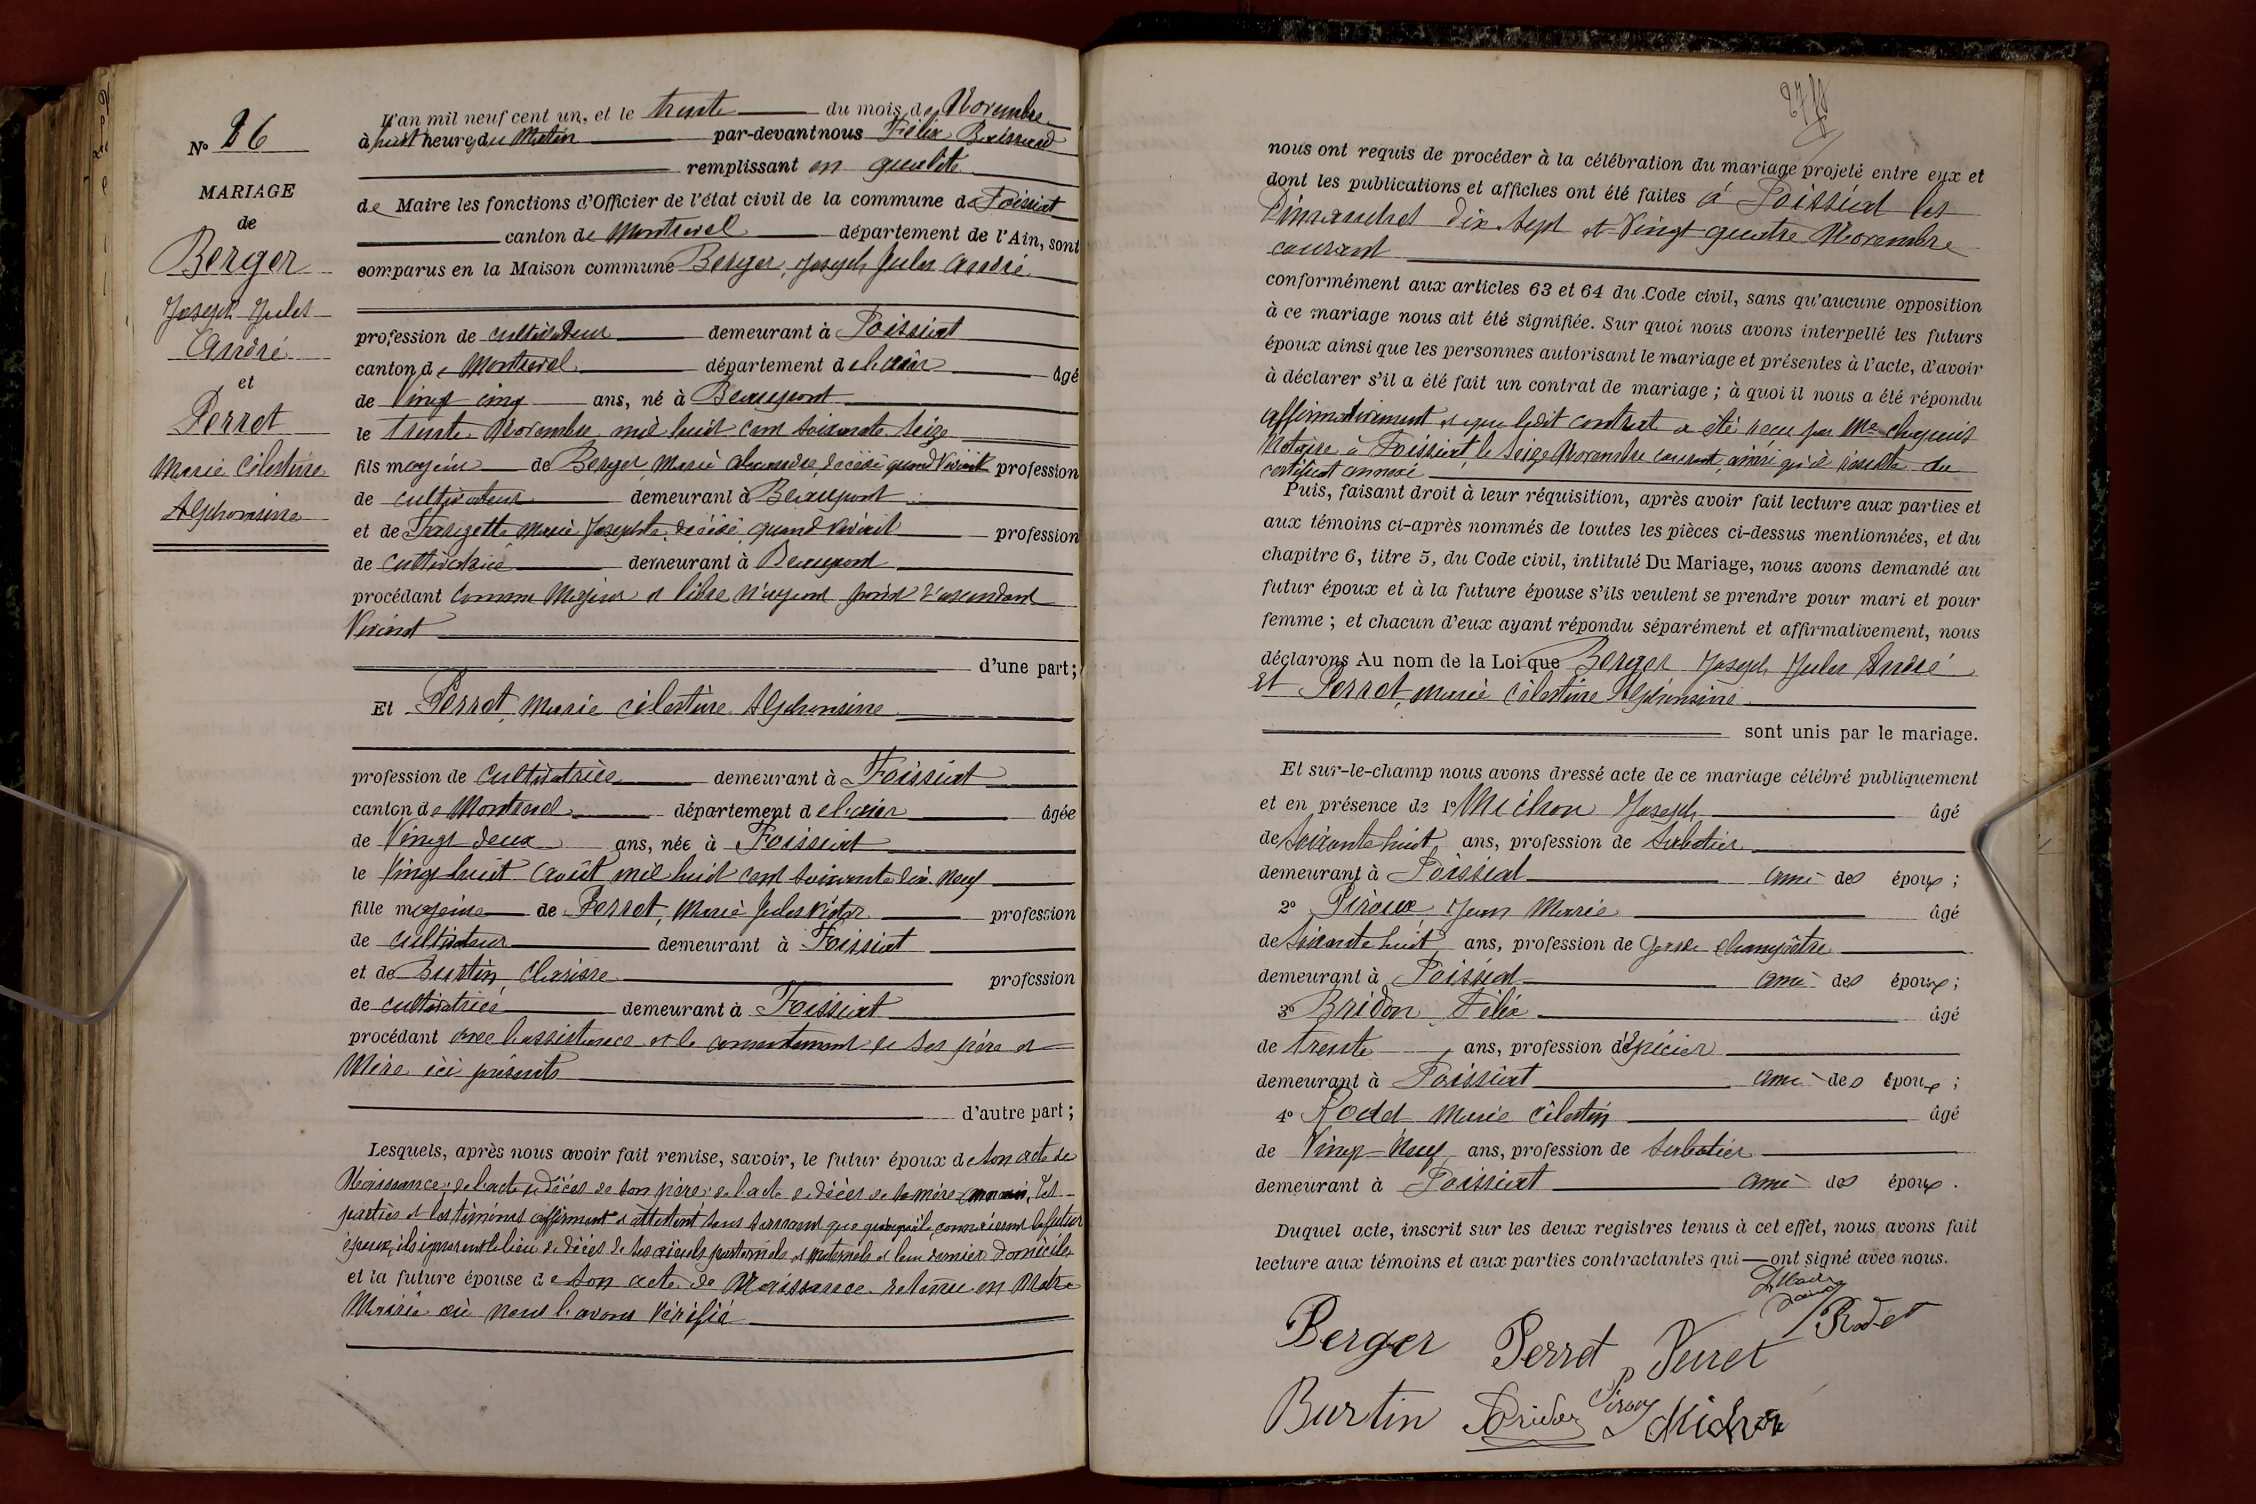 N° 26
MARIAGE
de
Berger
Joseph Jules
André
et
Perret
Marie Célestine
Alphonsine
L'an mil neuf cent un, et le trente du mois de Novembre
à huit heures du Matin par-devant nous Félix
remplissant en qualité
de Maire les fonctions d'Officier de l'état civil de la commune de Foissiat
canton de Montrevel département de l'Ain, sont
comparus en la Maison commune Berger, Joseph Jules André
profession de cultivateur demeurant à Foissiat
canton de Montrevel département de l'ain âgé
de Vingt cinq ans, né à Beaupont
le trente Novembre mil huit cent soixante seize
fils majeur de Berger Marie Alexandre décédé quand vivait profession
de cultivateur demeurant à Beaupont
et de Marie Josephte décédé quand vivait profession
de cultivatrice demeurant à Beaupont
procédant comme Majeur et libre n'ayant point d'ascendant
Vivant
d'une part;
Et Perret, Marie Célestine Alphonsine
profession de cultivatrice demeurant à Foissiat
canton de Montrevel département de l'ain âgée
de Vingt deux ans, née à Foissiat
le Vingt huit Août mil huit cent soixante dix neuf
fille majeure de Perret, Marie Jules Victor profession
de cultivateur demeurant à Foissiat
et de Burtin, Clarisse profession
de cultivatrice demeurant à Foissiat
procédant avec l'assistance et le consentement de ses père et
Mère ici présents
d'autre part;
Lesquels, après nous avoir fait remise, savoir, le futur époux de son acte de
Naissance; de l'acte de décès de son père; de l'acte de décès de sa mère Les
parties et les témoins affirment et attestent sous serment que quoiqu'ils connaissent le futur
époux, ils ignorent le lieu de décès de ses aïeuls paternels et maternels et leur dernier domicile
et la future épouse de son acte de Naissance retenu en Notre
Mairie où nous l'avons Vérifié
nous ont requis de procéder à la célébration du mariage projeté entre eux et
dont les publications et affiches ont été faites à Foissiat les
Dimanches dix sept et Vingt quatre Novembre
courant
conformément aux articles 63 et 64 du Code civil, sans qu'aucune opposition
à ce mariage nous ait été signifiée. Sur quoi nous avons interpellé les futurs
époux ainsi que les personnes autorisant le mariage et présentes à l'acte, d'avoir
à déclarer s'il a été fait un contrat de mariage; à quoi il nous a été répondu
affirmativement et que ledit contrat a été reçu par Me Chapuis
Notaire à Foissiat, le seize Novembre courant, ainsi qu'il résulte du
certificat annexé
Puis, faisant droit à leur réquisition, après avoir fait lecture aux parties et
aux témoins ci-après nommés de toutes les pièces ci-dessus mentionnées, et du
chapitre 6, titre 5, du Code civil, intitulé Du Mariage, nous avons demandé au
futur époux et à la future épouse s'ils veulent se prendre pour mari et pour
femme; et chacun d'eux ayant répondu séparément et affirmativement, nous
déclarons Au nom de la Loi que Berger Joseph Jules André
Et Perret, Marie Célestine Alphonsine
sont unis par le mariage.
Et sur-le-champ nous avons dressé acte de ce mariage célébré publiquement
et en présence de 1° Michon Joseph âgé
de soixante huit ans, profession de sabotier
demeurant à Foissiat ami des époux;
2° Piroux, Jean Marie âgé
de soixante huit ans, profession de Garde champêtre
demeurant à Foissiat ami des époux;
3° Bridon, Félix âgé
de trente ans, profession d'Epicier
demeurant à Foissiat ami des époux;
4° Rodet Marie Célestin âgé
de Vingt-Neuf ans, profession de sabotier
demeurant à Foissiat ami des époux.
Duquel acte, inscrit sur les deux registres tenus à cet effet, nous avons fait
lecture aux témoins et aux parties contractantes qui ont signé avec nous.
Berger Perret Perret Rodet
Burtin Bridon Piroux Michon